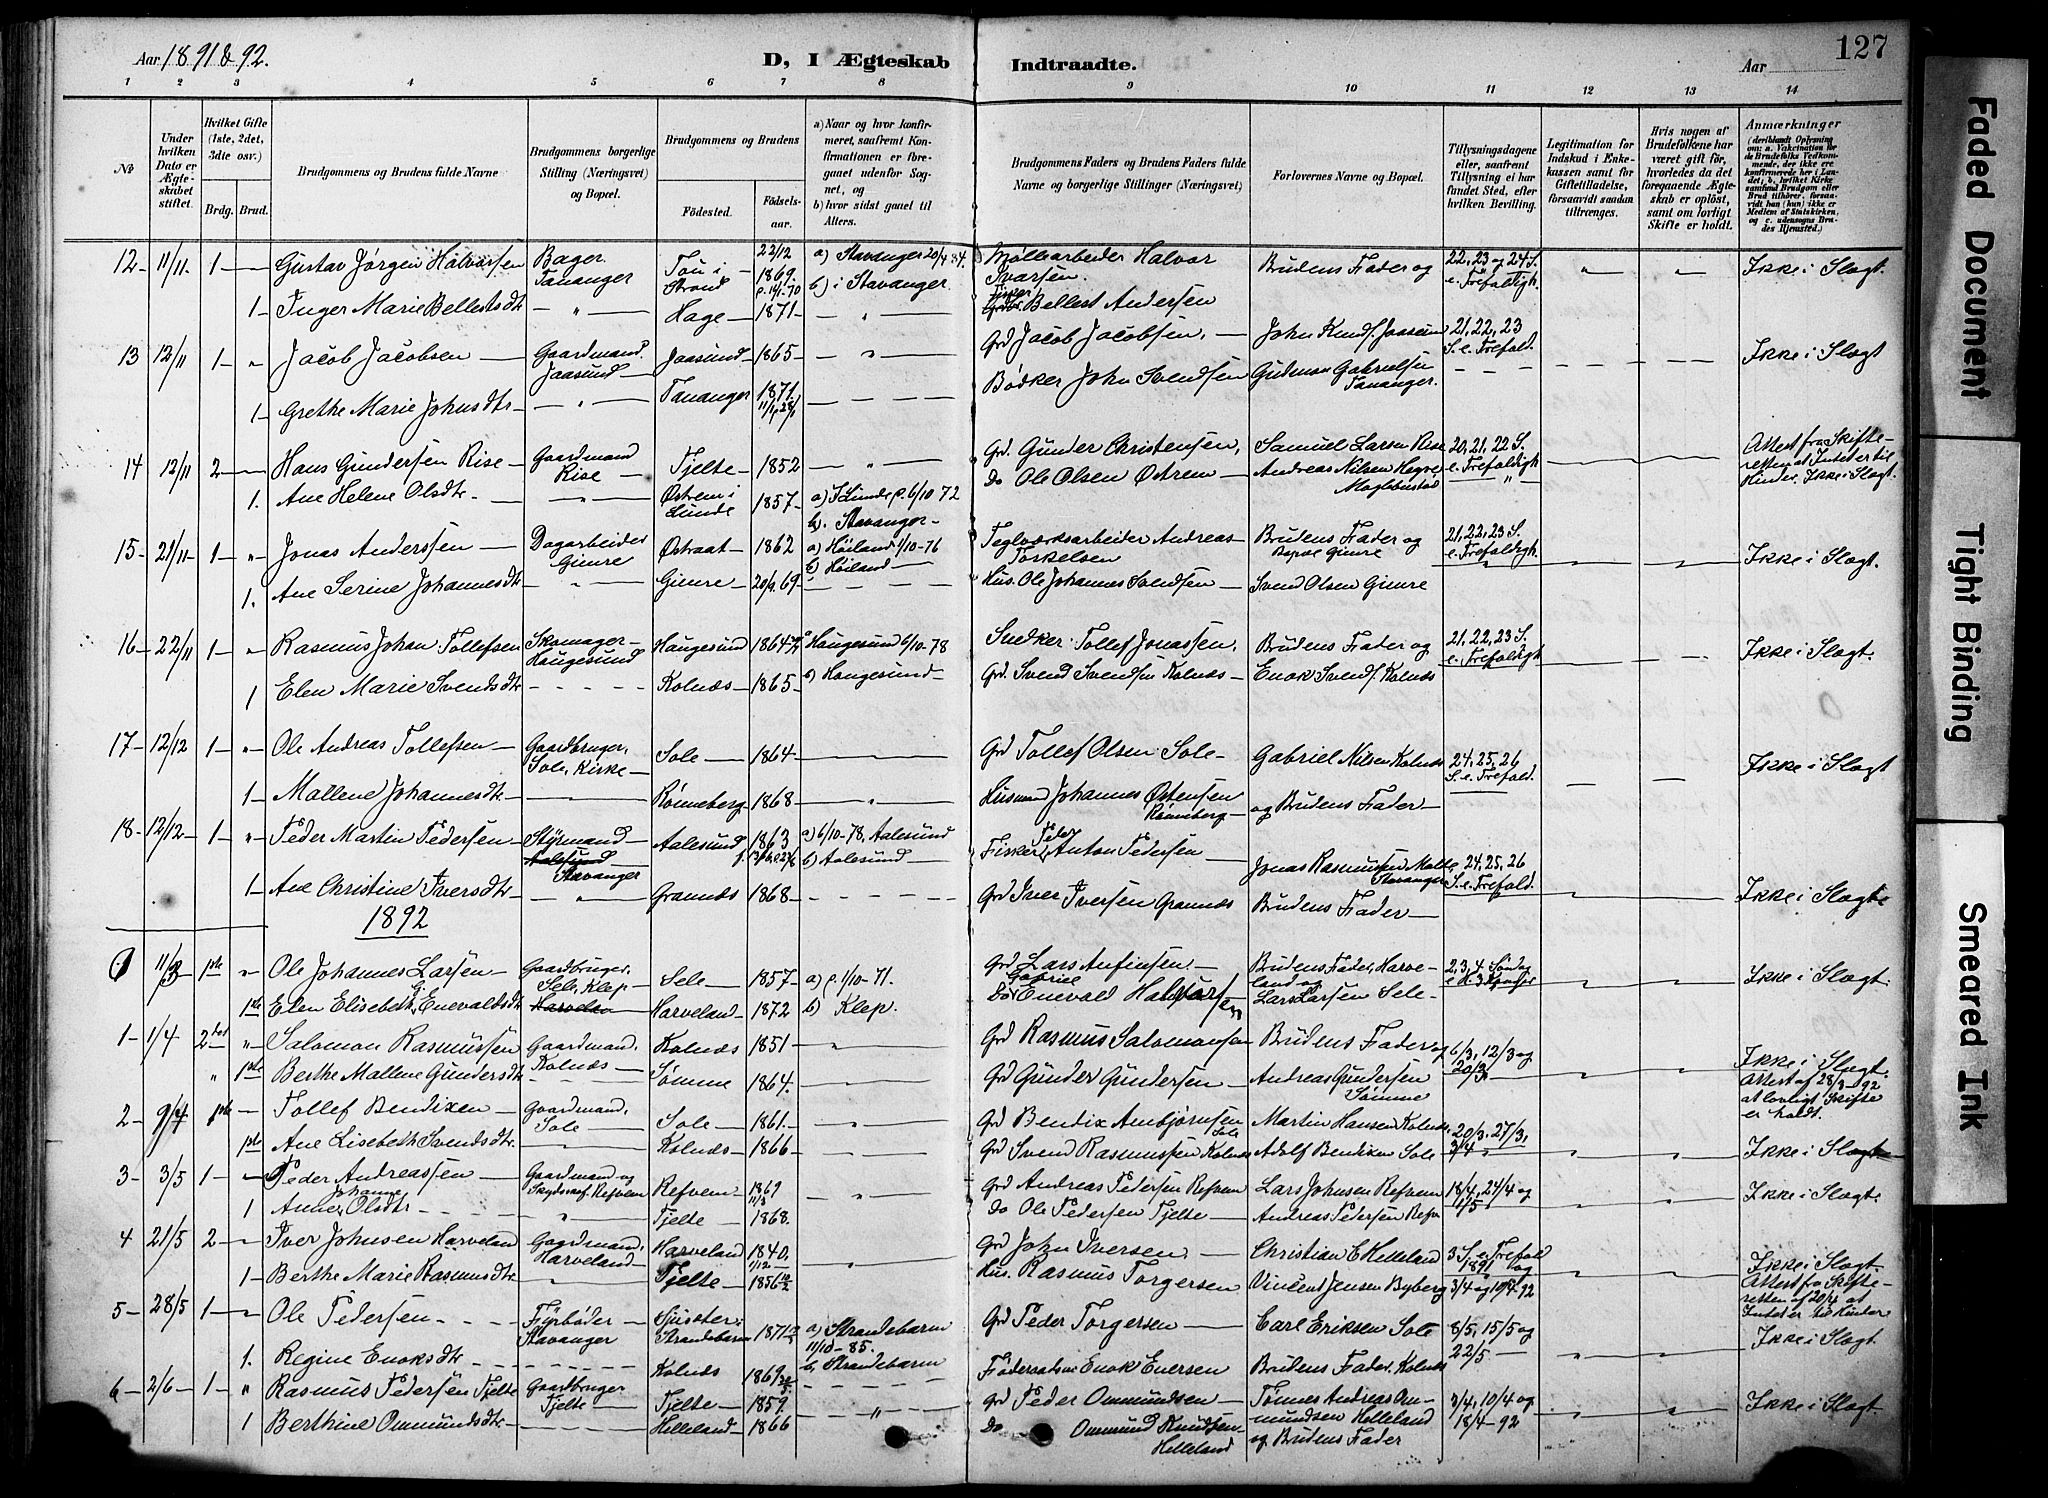 Aar 1891 & 92.
D, I Ægteskab Indtraadte.
Aar
127
1 2 3 4 5 6 7 8 9 10 11 12 13 14
№
Under hvilken Dato er Ægteskabet stiftet.
Hvilket Gifte (1ste, 2det, 3die osv.)
Brdg. Brud.
Brudgommens og Brudens fulde Navne
Brudgommens borgerlige Stilling (Næringsvei) og Bopæl.
Brudgommens og Brudens
Födested.
Födselsaar.
a) Naar og hvor konfirmeret, saafremt Konfirmationen er foregaaet udenför Sognet, og
b) hvor sidst gaaet til Alters.
Brudgommens Faders og Brudens Faders fulde Navne og borgerlige Stillinger (Næringsvei)
Forlovernes Navne og Bopæl.
Tillysningsdagene eller, saafremt Tillysning ei har fundet Sted, efter hvilken Bevilling.
Legitimation for Indskud i Enkekassen samt for Giftetilladelse, forsaavidt saadan tiltrænges.
Hvis nogen af Brudefolkene har været gift för, hvorledes da det foregaaende Ægteskab er oplöst, samt om lovligt Skifte er holdt.
Anmærkninger
12 11/11 1 Gustav Jørgen Halvorsen Bager Tananger Tou i Strand 22/12 1869 a) Stavanger 20/4 84. b) i Stavanger. Halvor Ivarsen Brudens Fader og 22, 23 og 24 S. e. Trefoldigh. Ikke i Slægt.
1 Inger Marie Bellestsdtr Hage 1871 Fisker Bellest Andersen
13 12/11 1 Jacob Jacobsen Gaardmand Jaasund Jaasund 1865 Grd Jacob Jacobsen, John Knuds. Jaasund 21, 22, 23 S. e. Trefold. Ikke i Slægt
1 Grethe Marie Johnsdtr Tananger 1871. Bødker John Svendsen Gudmon Gabrielsen Tananger.
14 12/11 2 Hans Gundersen Rise Gaardmand Rise Tjelte 1852 Grd. Gunder Christensen, Samuel Larsen Rise 20, 21, 22 S. e. Trefoldigh. Attest fra Skifteretten at Intet er til Hinder. Ikke i Slægt.
1. Ane Helene Olsdtr. Østrem i Lunde 1857 a) I Lunde 6/10-72 b. Stavanger do Ole Olsen Østrem Andreas Nilsen
15 21/11 1 Jonas Anderssen Dagarbeider Gimre Østraat 1862 a) Høiland 1/10-76 b) Høiland Teglværksarbeider Andreas Torkelsen Brudens Fader og 21, 22, 23 S. e. Trefoldigh. Ikke i Slægt.
1. Ane Serine Johannesdtr Gimre 69 Hus. Ole Johannes Svendsen Svend Olsen Gimre
16 22/11 1 Rasmus Johan Tollefsen Skomager Haugesund Haugesund 1864 a) Haugesund 6/10-78 b) Haugesund Snedker Tollef Jonassen. Brudens Fader og 21, 22, 23 S. e. Trefoldigh. Ikke i Slægt.
1 Elen Marie Svendsdtr Kolnæs 1865 Grd. Svend Svendsen Kolnæs Enok Svends. Kolnæs
17 12/12 1 Ole Andreas Tollefsen Gaardbruger, Sole, Kirke Sole 1864 Grd Tollef Olsen Sole Gabriel Nilsen Kolnæs 24, 25, 26 S. e. Trefold. Ikke i Slægt
1 Mallene Johannesdtr Rønneberg 1868 Husmand Johannes Østensen og Brudens Fader
18 12/12 1 Peder Martin Pedersen Styrmand Aalesund Stavanger Aalesund 1863 a) 6/10-78, Aalesund b) Aalesund Fisker Peder Anton Pedersen Jonas Rasmussen Malte Stavanger 24, 25, 26 S. e. Trefold. Ikke i Slægt
1 Ane Christine Iversdtr Grannæs 1868 Grd Iver Iversen Grannæs Brudens Fader
1892
11/3 1ste Ole Johannes Larsen Gaardbruger Sele, Klep Sele 1857 a) 1/10-71. b) Klep. Grd Lars Anfinsen Brudens Fader, Harveland og 2, 3, 4 Søndag Ikke i Slægt.
1ste Elen Elisebeth Enevaldsdtr Harveland Harveland 1872 Gabriel Enevald Lars Larsen Sele
1 1/4 2det Salomon Rasmussen Gaardmand, Kolnæs Kolnæs 1851 Grd Rasmus Salomonsen Brudens Fader og 6/3, 12/3 og 20/3 Ikke i Slægt. Attest af 28/3-92 at lovligt Skifte er holdt.
1ste Berthe Mallene Gundersdtr Sømme 1864. Grd Gunder Gundersen Andreas Gundersen Sømme
2 9/4 1ste Tollef Bendixen Gaardmand, Sole Sole 1861. Grd Bendix Ambjørnsen Sole Martin Hansen Kolnæs, 20/3, 27/3, 3/4
1ste Ane Lisebeth Svendsdtr. Kolnæs 1866 Grd Svend Rasmussen Kolnæs Adolf Bendixen Sole Ikke i Slægt
3 3/5 1 Peder Andreassen Gaardmand og Skydsskaf. Refvem Refvem 1869 Grd Andreas Pedersen Refvem Lars Johnsen Refvem 18/4, 24/4 og 1/5 Ikke i Slægt.
1 Anne Johanne Olsdtr Tjelte 1868. do Ole Pedersen Tjelte Andreas Pedersen Refv
4 21/5 2 Iver Johnsen Harveland Gaardmand, Harveland Harveland 1840 Grd John Iversen Christian E Helleland 3 S. e. Trefold 1891 og Ikke i Slægt. Attest fra Skifteretten af 20/4 at Intet er til Hinder
1 Berthe Marie Rasmusdtr Tjelte 1856 Hus. Rasmus Torgersen Vincent Jensen Byberg 3/4 og 10/4 92
5 28/5 1 Ole Pedersen Fyrbøder Stavanger Strandebarm 1871 a) Strandebarm 11/10-85. b) Strandebarm Grd Peder Torgersen Carl Eriksen Sole 8/5, 15/5 og 22/5 Ikke i Slægt
1. Regine Enoksdtr Kolnæs 1869 Føderaadsm Enok Enersen Brudens Fader, Kolnæs
6 2/6 1 Rasmus Pedersen Tjelte Gaardbruger Tjelte Tjelte 1859. Grd Peder Ommundsen Tønnes Andreas Ommundsen Helleland 3/4, 10/4 og 18/4-92 Ikke i Slægt.
1 Berthine Ommundsdtr Helleland 1866 do Ommund Knudsen Helleland og Brudens Fader
Faded Document
Tight Binding
Smeared Ink